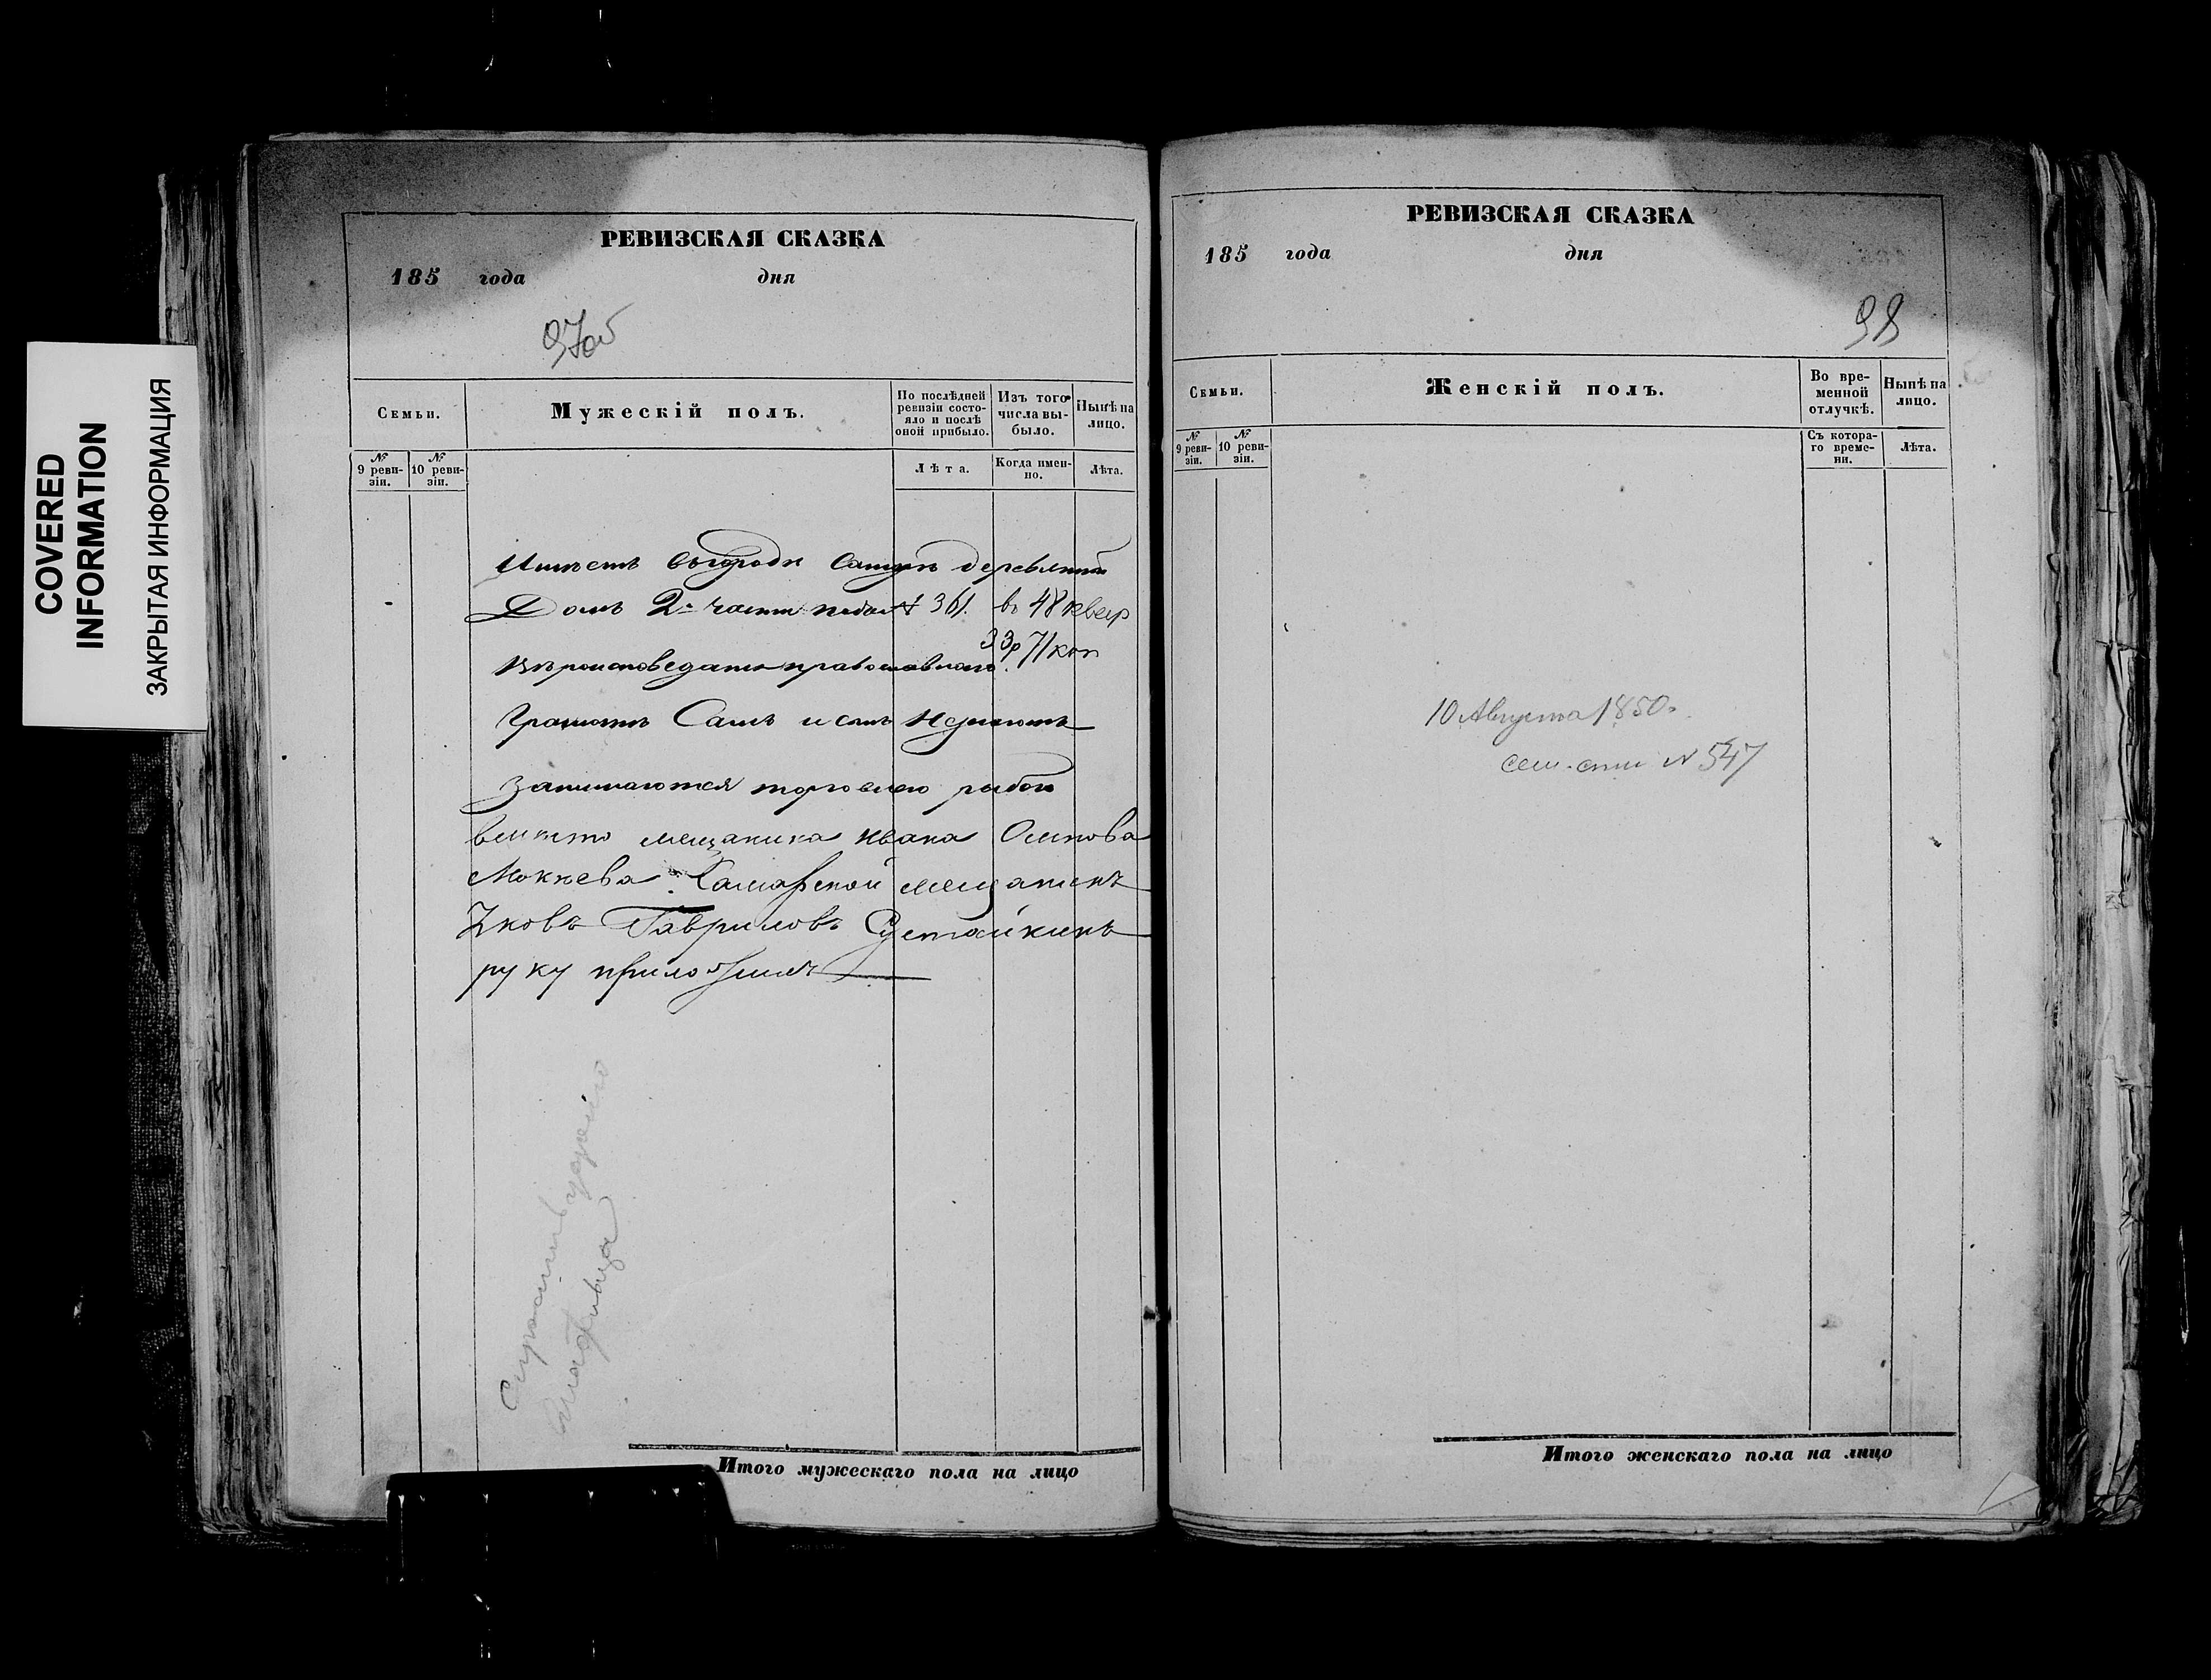 COVERED
INFORMATION
ЗАКРЫТАЯ ИНФОРМАЦИЯ
РЕВИЗСКАЯ СКАЗКА
185 года дня
97об
Семьи.
Мужескій полъ.
По послѣдней ревизіи состояло и послѣ оной прибыло.
Изъ того числа выбыло.
Нынѣ на лицо.
№ 9 ревизіи.
№ 10 ревизіи.
Лѣта.
Когда именно.
Лѣта.
Имѣетъ въгороди Самарѣ деревянный
Домъ 2й части подъ № 361. въ 48 квар
33р 71 коп
Вѣроисповеданія православнаго.
Грамотѣ Самъ и сынъ неумеютъ
Занимаются торговлею рыбою
вмѣсто мещанина Ивана Осипова
Мокѣева Самарской мещанинъ
Яковъ Гавриловъ Сустайкинъ
руку приложилъ
Итого мужескаго пола на лицо
РЕВИЗСКАЯ СКАЗКА
185 года дня
98
Семьи.
Женскій полъ.
Во временной отлучкѣ.
Нынѣ на лицо.
№ 9 ревизіи.
№ 10 ревизіи.
Съ котораго времени.
Лѣта.
10 Августа 1850.
№ 547
Итого женскаго пола на лицо